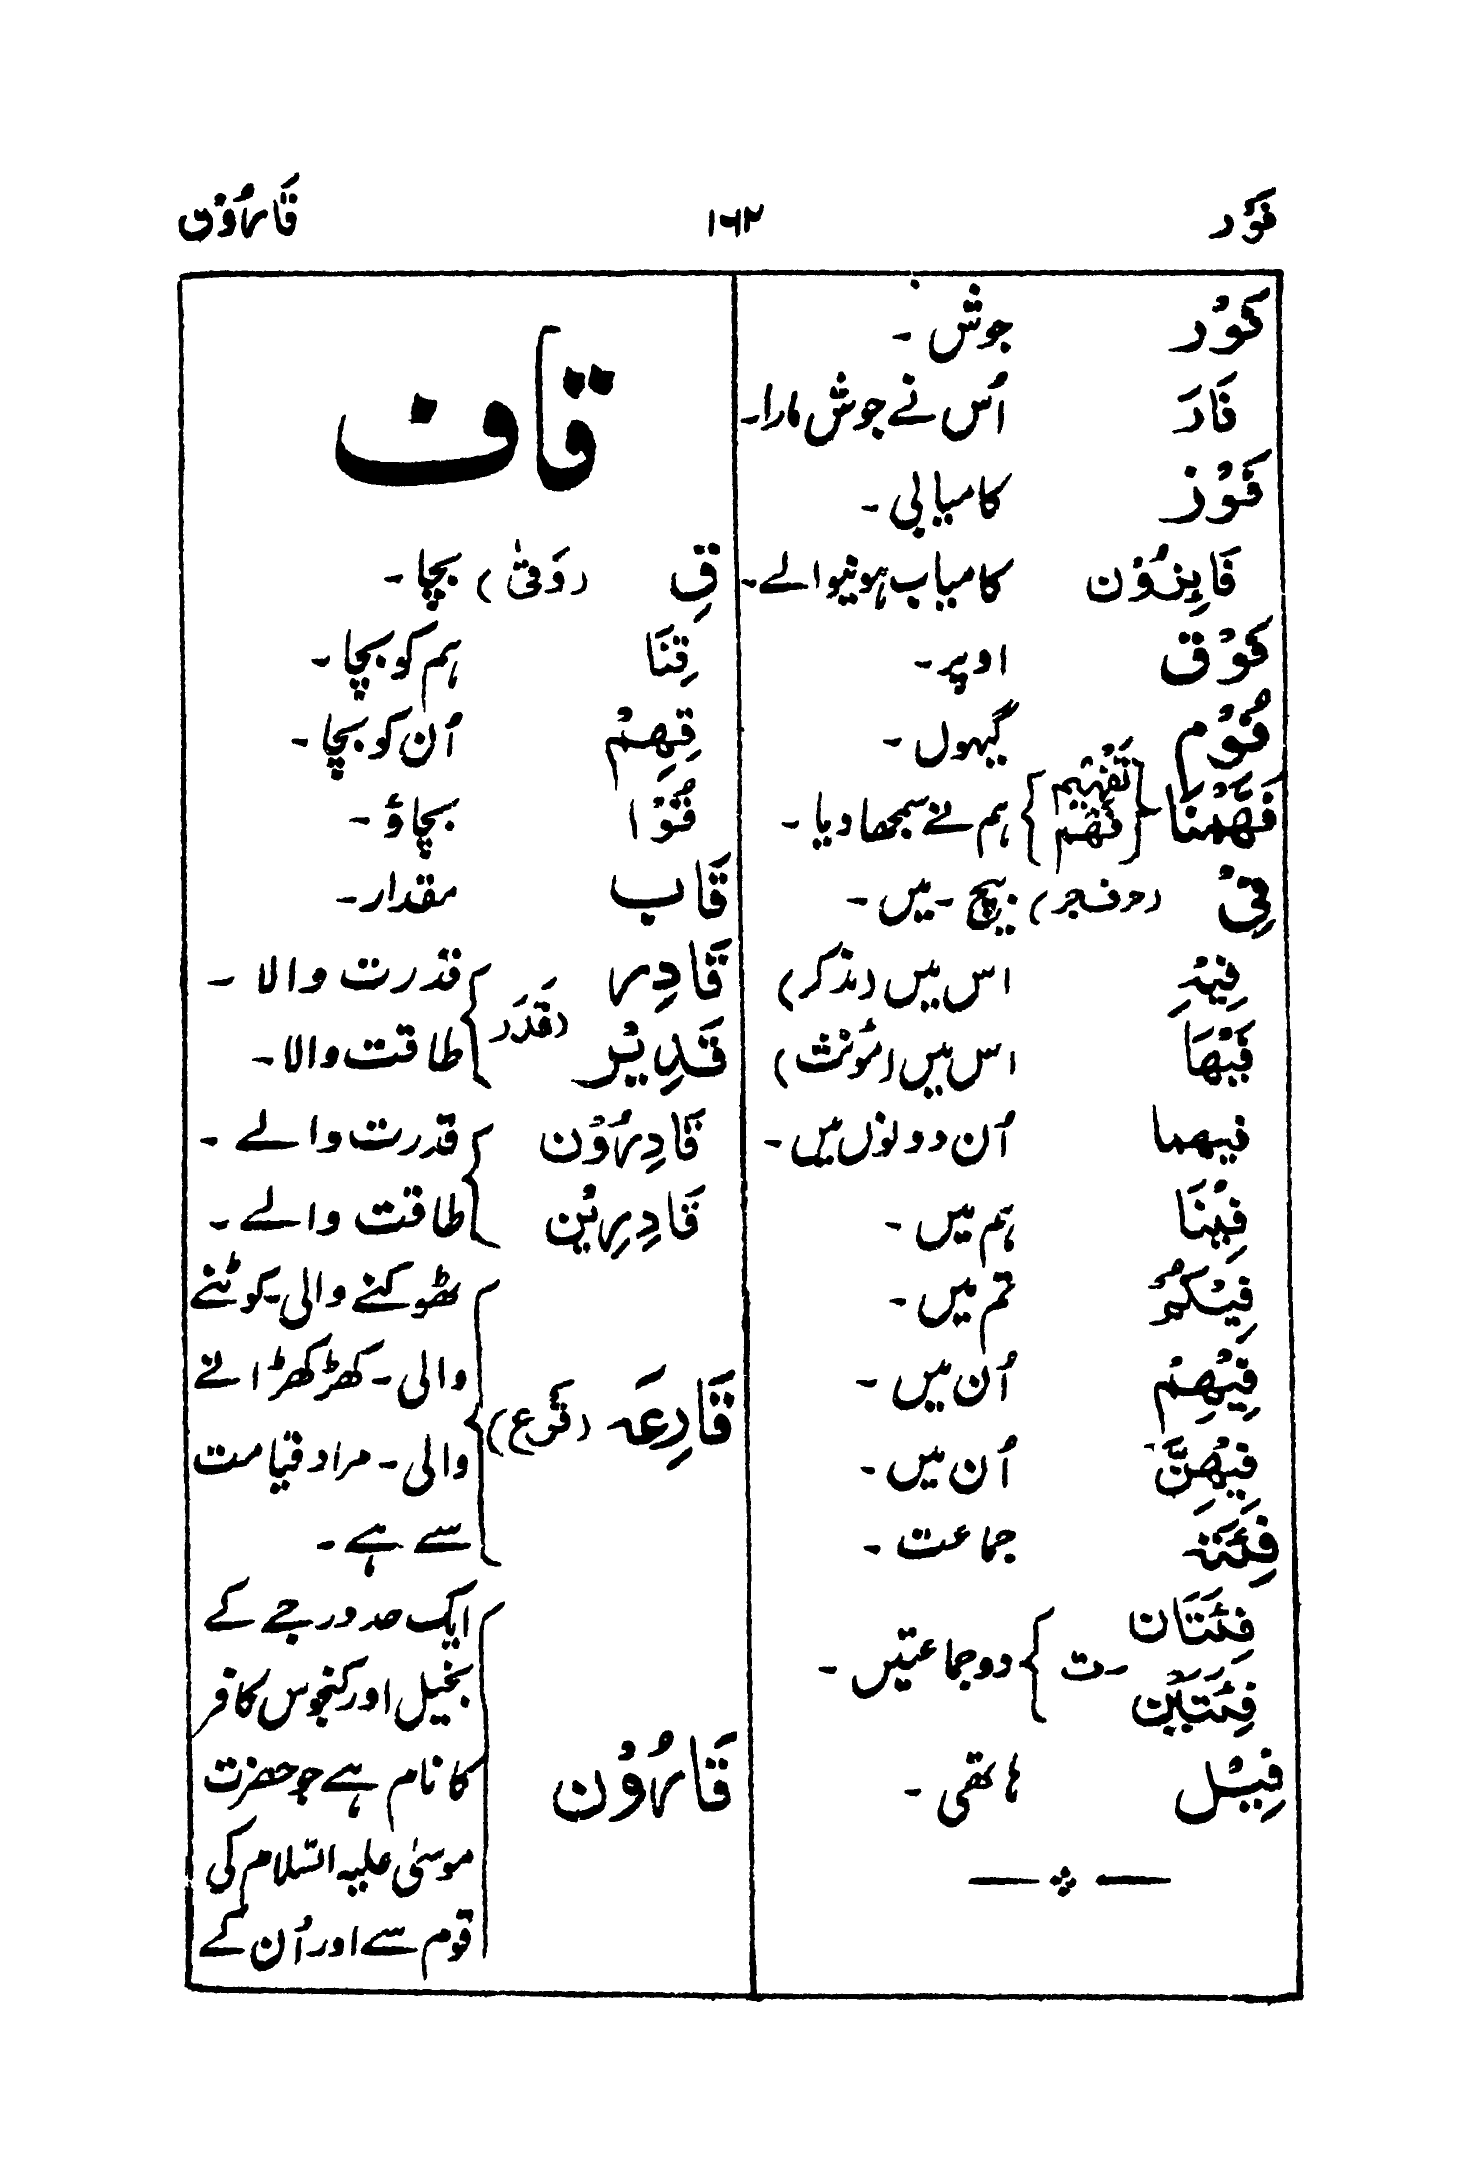 فَوْر ۱۶۲ قَارُوْن
فَوْر جوش ۔
فَارَ اُس نے جوش مارا۔
فَوْز کامیابی ۔
فَایِزُوْن کامیاب ہونیوالے۔
فَوْق اوپر۔
فُوْم گیہوں ۔
فَهَّمْنَا {تَفْهِیْم فَهْم} ہم نے سمجھا دیا ۔
فِیْ (حرف جر) بیچ ۔ میں ۔
فِیْهِ اس میں (مذکر)
فِیْهَا اس میں (مؤنث)
فیهما اُن دونوں میں ۔
فِیْنَا ہم میں ۔
فِیْکُمْ تم میں ۔
فِیْهِمْ اُن میں ۔
فِیْهِنَّ اُن میں ۔
فِئَة جماعت ۔
فِئَتَان
فِئَتَیْن ۔ت } دو جماعتیں ۔
فِیْل ہاتھی ۔
قاف
قِ (وَقیٰ) بچا ۔
قِنَا ہم کو بچا ۔
قِهِمْ اُن کو بچا ۔
قُوْا بچاؤ ۔
قَاب مقدار ۔
قَادِر (قَدَر) قدرت والا ۔
قَدِیْر طاقت والا ۔
قَادِرُوْن قدرت والے ۔
قَادِرِیْن طاقت والے ۔
قَارِعَة (قَرَع) ٹھوکنے والی ۔ کوٹنے
والی ۔ کھڑ کھڑانے
والی ۔ مراد قیامت
سے ہے ۔
قَارُوْن ایک حد درجے کے
بخیل اور کنجوس کافر
کا نام ہے جو حضرت
موسیٰ علیہ السّلام کی
قوم سے اور اُن کے